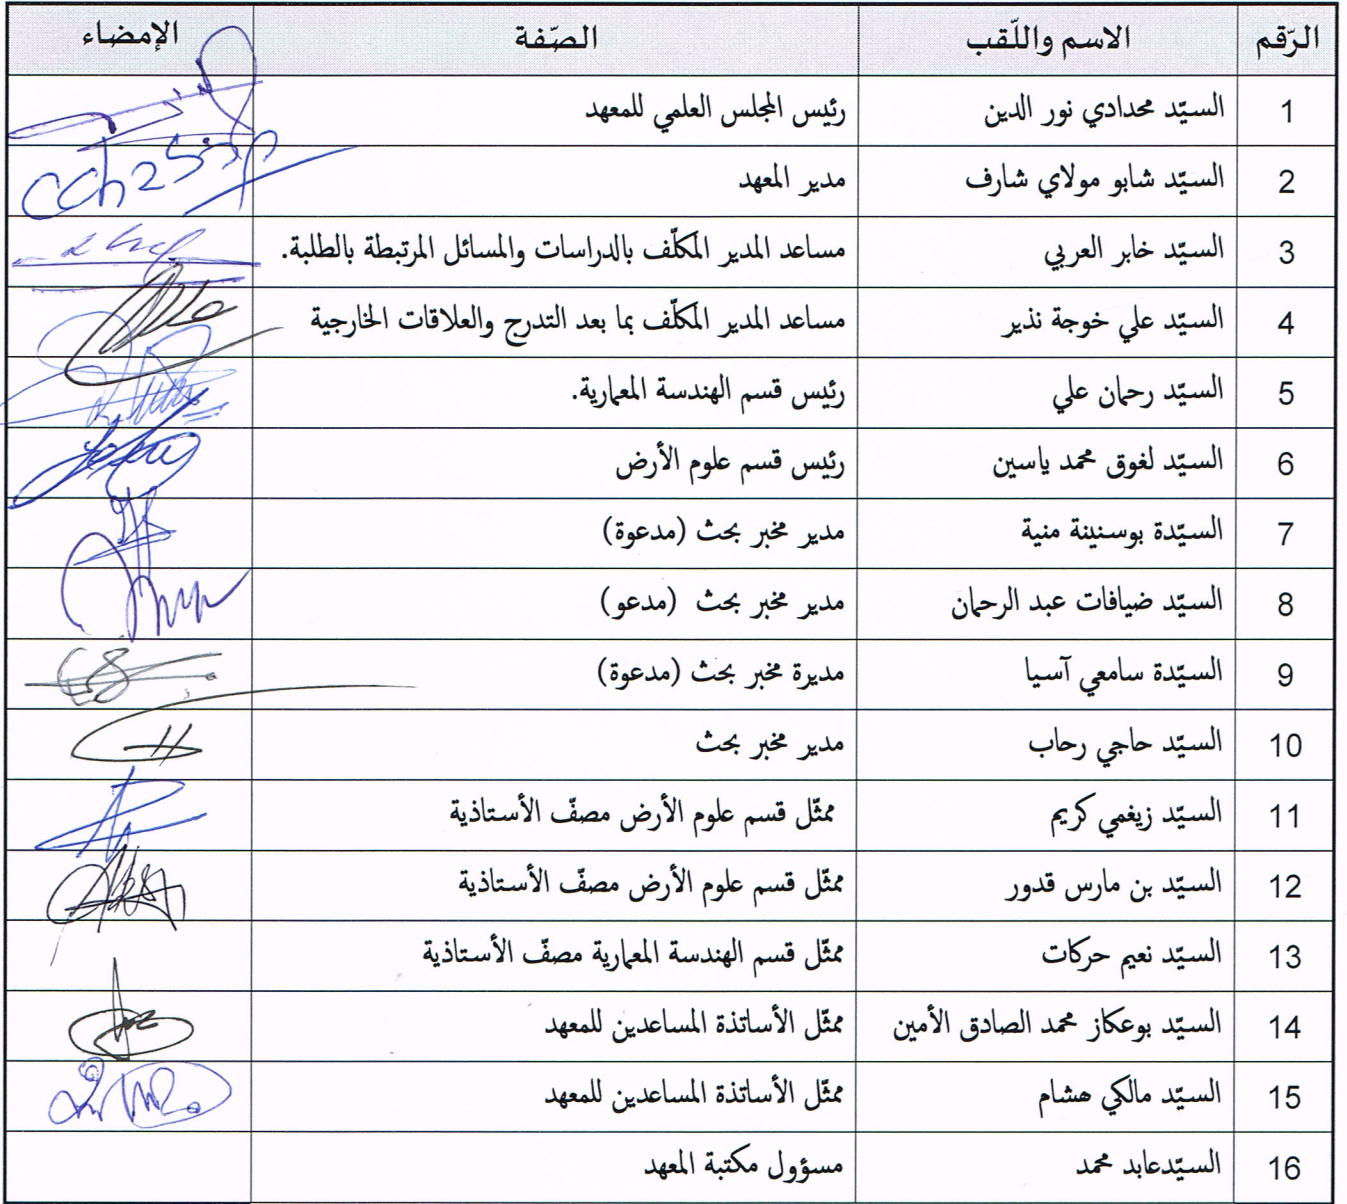 الرّقم الاسم واللّقب الصّفة الإمضاء
1 السيّد محدادي نور الدين رئيس المجلس العلمي للمعهد
2 السيّد شابو مولاي شارف مدير المعهد
3 السيّد خابر العربي مساعد المدير المكلّف بالدراسات والمسائل المرتبطة بالطلبة.
4 السيّد علي خوجة نذير مساعد المدير المكلّف بما بعد التدرج والعلاقات الخارجية
5 السيّد رحمان علي رئيس قسم الهندسة المعمارية.
6 السيّد لغوق محمد ياسين رئيس قسم علوم الأرض
7 السيّدة بوسنينة منية مدير مخبر بحث (مدعوة)
8 السيّد ضيافات عبد الرحمان مدير مخبر بحث (مدعو)
9 السيّدة سامعي آسيا مديرة مخبر بحث (مدعوة)
10 السيّد حاجي رحاب مدير مخبر بحث
11 السيّد زيغمي كريم ممثّل قسم علوم الأرض مصفّ الأستاذية
12 السيّد بن مارس قدور ممثّل قسم علوم الأرض مصفّ الأستاذية
13 السيّد نعيم حركات ممثّل قسم الهندسة المعمارية مصفّ الأستاذية
14 السيّد بوعكاز محمد الصادق الأمين ممثّل الأساتذة المساعدين للمعهد
15 السيّد مالكي هشام ممثّل الأساتذة المساعدين للمعهد
16 السيّدعابد محمد مسؤول مكتبة المعهد